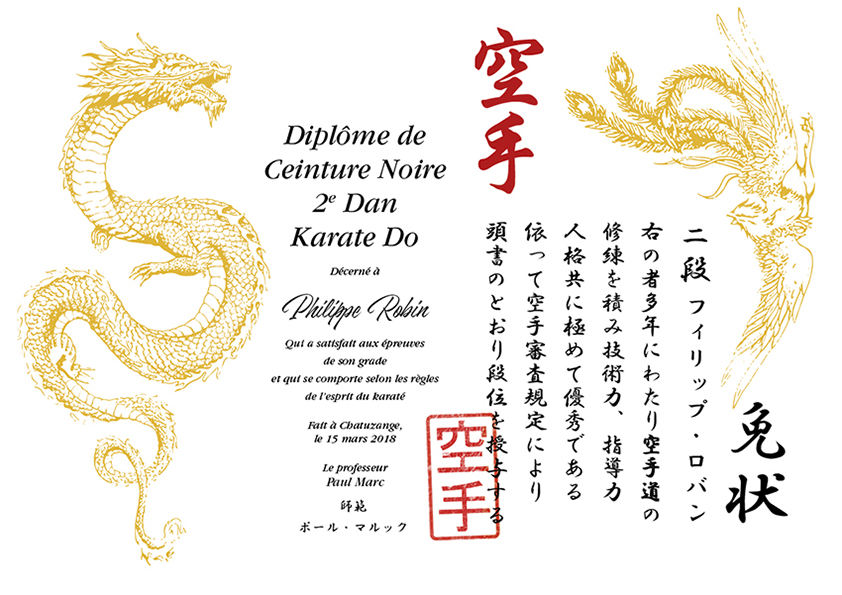 Diplôme de
Ceinture Noire
2e Dan
Karate Do
Décerné à
Philippe Robin
Qui a satisfait aux épreuves
de son grade
et qui se comporte selon les règles
de l'esprit du karaté
Fait à Chatuzange,
le 15 mars 2018
Le professeur
Paul Marc
師範
ポール・マルック
空手
免状
二段 フィリップ・ロバン
右の者多年にわたり空手道の
修練を積み技術力、指導力
人格共に極めて優秀である
依って空手審査規定により
頭書のとおり段位を授与する
空手